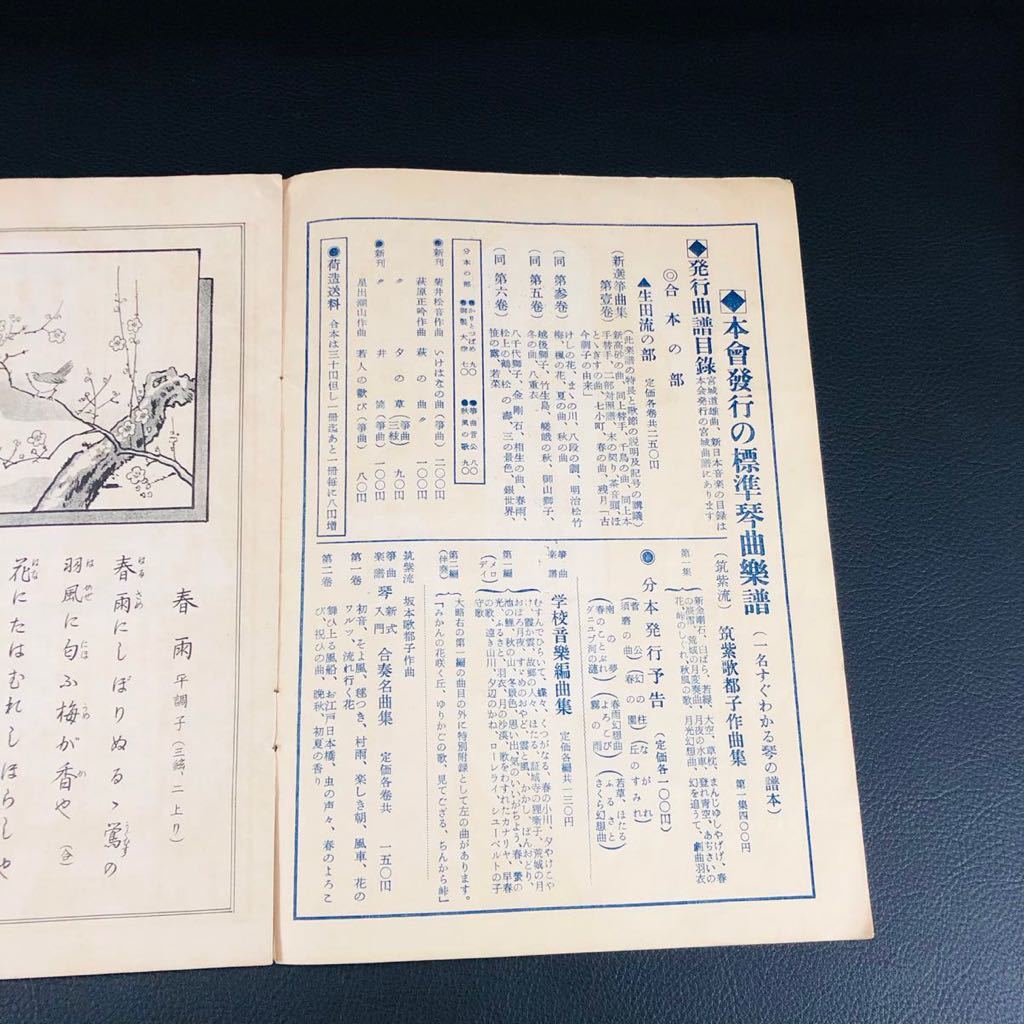 ◆本會發行の標準琴曲樂譜(一名すぐわかる琴の譜本)
◆発行曲譜目錄
宮城道雄曲、新日本音楽の目録は
本会発行の宮城曲譜にあります
◎合本の部
▲生田流の部 定価各巻共二五〇円
(新選箏曲集 第壹巻)
(此楽譜の特長と歌節の説明及記号の講議)
新高砂の曲、同上替手、千鳥の曲、同上本
手替手、二部対照譜、末の契り、茶音頭、ほ
とゝぎすの曲、七小町、春の曲、残月「古
今調子の由来」
(同 第参巻)
けしの花、まゝの川、八段の調、明治松竹
梅、楓の花、夏の曲、秋の曲
(同 第五巻)
越後獅子、竹生島、嵯峨の秋、御山獅子、
冬の曲、八重衣
(同 第六巻)
八千代獅子、金剛石、相生の曲、春雨、
松上の鶴、松の壽、三の景色、銀世界、
笹の露、若菜
分本の部
かりとつばめ 九〇
御製 大空 七〇
箏曲 菅公 八〇
秋風の歌 九〇
新刊 菊井松音作曲 いけはなの曲(箏曲) 二〇〇円
萩原正吟作曲 萩の曲 〃 一〇〇円
〃 夕の草(箏曲)(三絃) 九〇円
新刊 〃 井筒(箏曲) 一〇〇円
星田潮山作曲 若人の歡び(箏曲) 八〇円
荷造送料 合本は三十円但し一冊迄あと一冊毎に八円増
(筑紫流) 筑紫歌都子作曲集 第一集四〇〇円
第一集
新金剛石、白ばら、若緑、大空、草枕、まんじゆしやげげ、春
の淡雪、荒城の月変奏曲、月夜の水車、登れ青空、あぢさいの
花、峠のしぐれ、秋風の歌、月光幻想曲、幻を追うて、創曲羽衣
分本発行予告 (定価各一〇〇円)
(菅公)(幻の柱)(ながれ)
(須磨の曲)(春の園)(丘のすみれ)
(南の夢)(春雨幻想曲)(若草、ほたる)
(春のことぶれ)(よろこび)(ふるさと)
(ダニユブ河の漣)(霧の雨)(さくら幻想曲)
箏曲楽譜 学校音樂編曲集 定価各編共一三〇円
第一編(メロディ)
むすんでひらいて、蝶々、くつがなる、春の小川、夕やけこや
け、霞か雲、故郷の人々、ほたる、証城寺の狸ばやし、荒城の月
おぼろ月夜、すゞめのおやど、雲と風、かかし、ぼんおどり、
池の鯉、秋の山、冬景色、思い出、気のいいがちよう、春、螢の
光、ふるさと、羽衣、月の沙漠、歌をわすれたカナリヤ、早春
の歌、遠き山川、夕辺のかね、ローレライ、シユーベルトの子
守歌
第二編(伴奏)
大略右の第一編の曲目の外に特別附録として左の曲があります。
『みかんの花咲く丘、ゆりかごの歌、見てござる、ちんから峠』
筑紫流 坂本歌都子作曲
箏曲楽譜 琴 新式入門 合奏名曲集 定価各巻共 一五〇円
第一巻 初音、そよ風、毬つき、村雨、楽しき朝、風車、花の
ワルツ、流れ行く花
第二巻 舞ひ上る風船、お江戸日本橋、虫の声々、春のよろこ
び、祝ひの曲、晩秋、初夏の香り
春雨 平調子(三絃、二上り)
春雨にしぽりぬるゝ鶯の
羽風に匂ふ梅が香や(合)
花にたはむれしほらしや